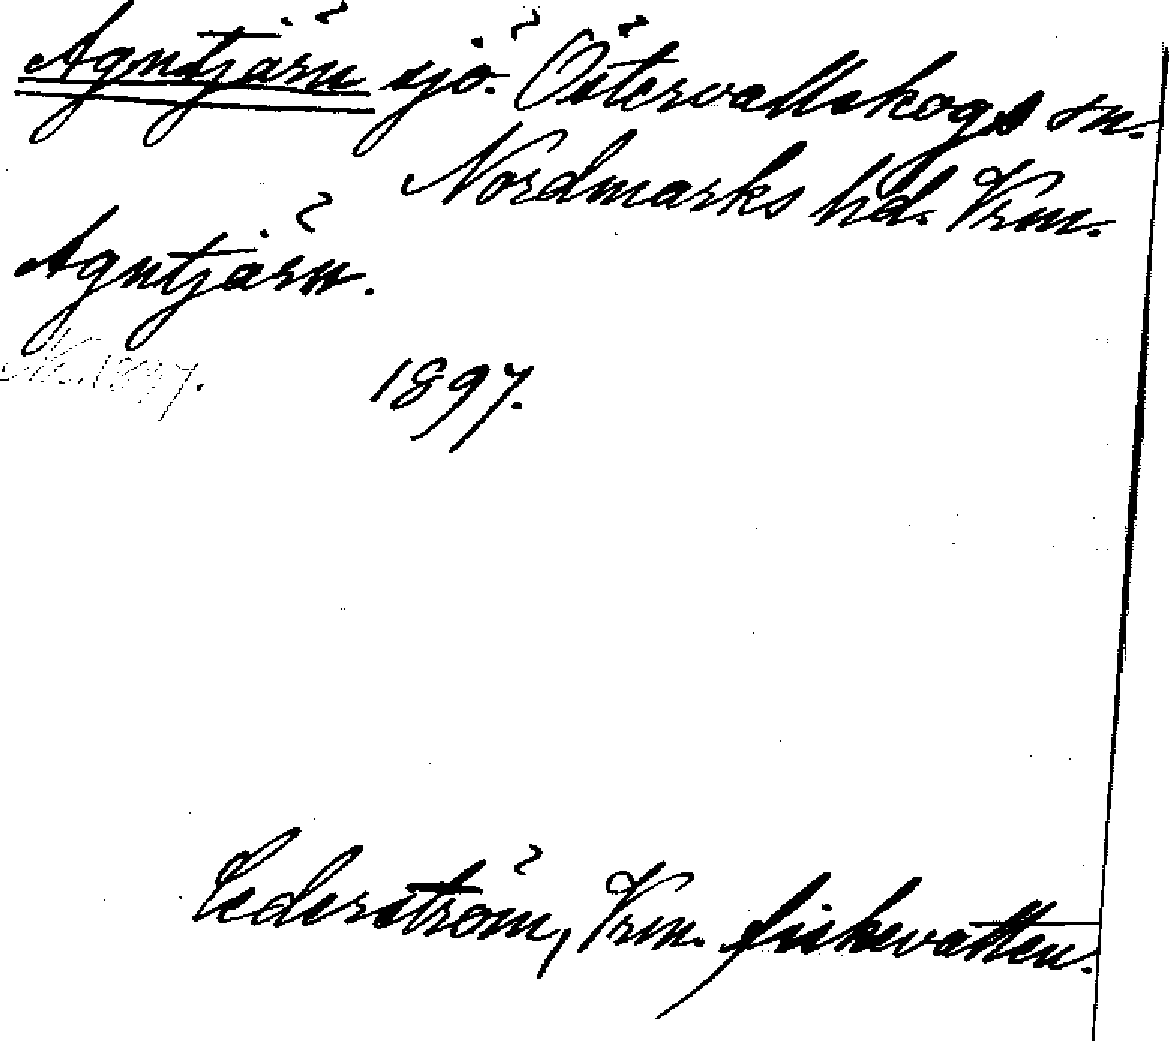 Agntjärn sjö. Östervallskogs sn.
Nordmarks hd. Vrm.
Agntjärn.
1897.
1897.
Cederström, Vrm. fiskevatten.